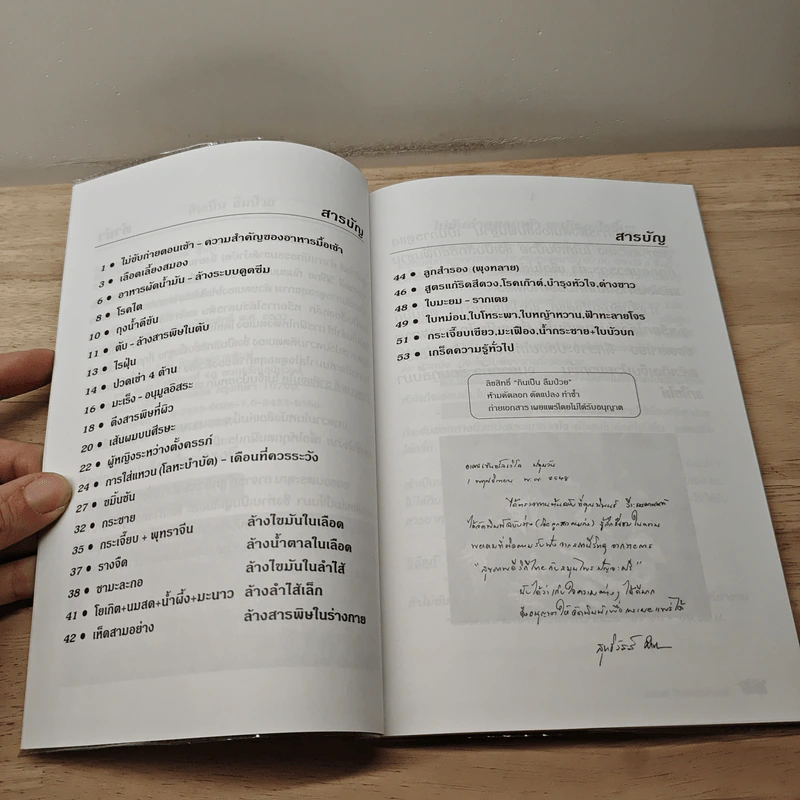 สารบัญ
1 • ไม่ขับถ่ายตอนเช้า - ความสำคัญของอาหารมื้อเช้า
3 • เลือดเลี้ยงสมอง
6 • อาหารผัดน้ำมัน - ล้างระบบดูดซึม
8 • โรคไต
10 • ถุงน้ำดีขัน
11 • ตับ - ล้างสารพิษในตับ
13 • ไรฝุ่น
14 • ปวดเข่า 4 ด้าน
16 • มะเร็ง - อนุมูลอิสระ
18 • ดึงสารพิษที่ผิว
20 • เส้นผมบนศีรษะ
22 • ผู้หญิงระหว่างตั้งครรภ์
24 • การใส่แหวน (โลหะบำบัด) - เดือนที่ควรระวัง
27 • ขมิ้นชัน
32 • กระชาย
35 • กระเจี๊ยบ + พุทราจีน ล้างไขมันในเลือด
37 • รางจืด ล้างน้ำตาลในเลือด
38 • ชามะละกอ ล้างไขมันในลำไส้
41 • โยเกิต+นมสด+น้ำผึ้ง+มะนาว ล้างลำไส้เล็ก
42 • เห็ดสามอย่าง ล้างสารพิษในร่างกาย
สารบัญ
44 • ลูกสำรอง (พุงทลาย)
46 • สูตรแก้ริดสีดวง,โรคเก๊าต์,บำรุงหัวใจ,ด่างขาว
48 • ใบมะยม - รากเตย
49 • ใบหม่อน,ใบโหระพา,ใบหญ้าหวาน,ฟ้าทะลายโจร
51 • กระเจี๊ยบเขียว,มะเฟือง,น้ำกระชาย+ใบบัวบก
53 • เกร็ดความรู้ทั่วไป
ลิขสิทธิ์ "กินเป็น ลืมป่วย"
ห้ามคัดลอก ดัดแปลง ทำซ้ำ
ถ่ายเอกสาร เผยแพร่โดยไม่ได้รับอนุญาต
1 พฤศจิกายน พ.ศ. 2548